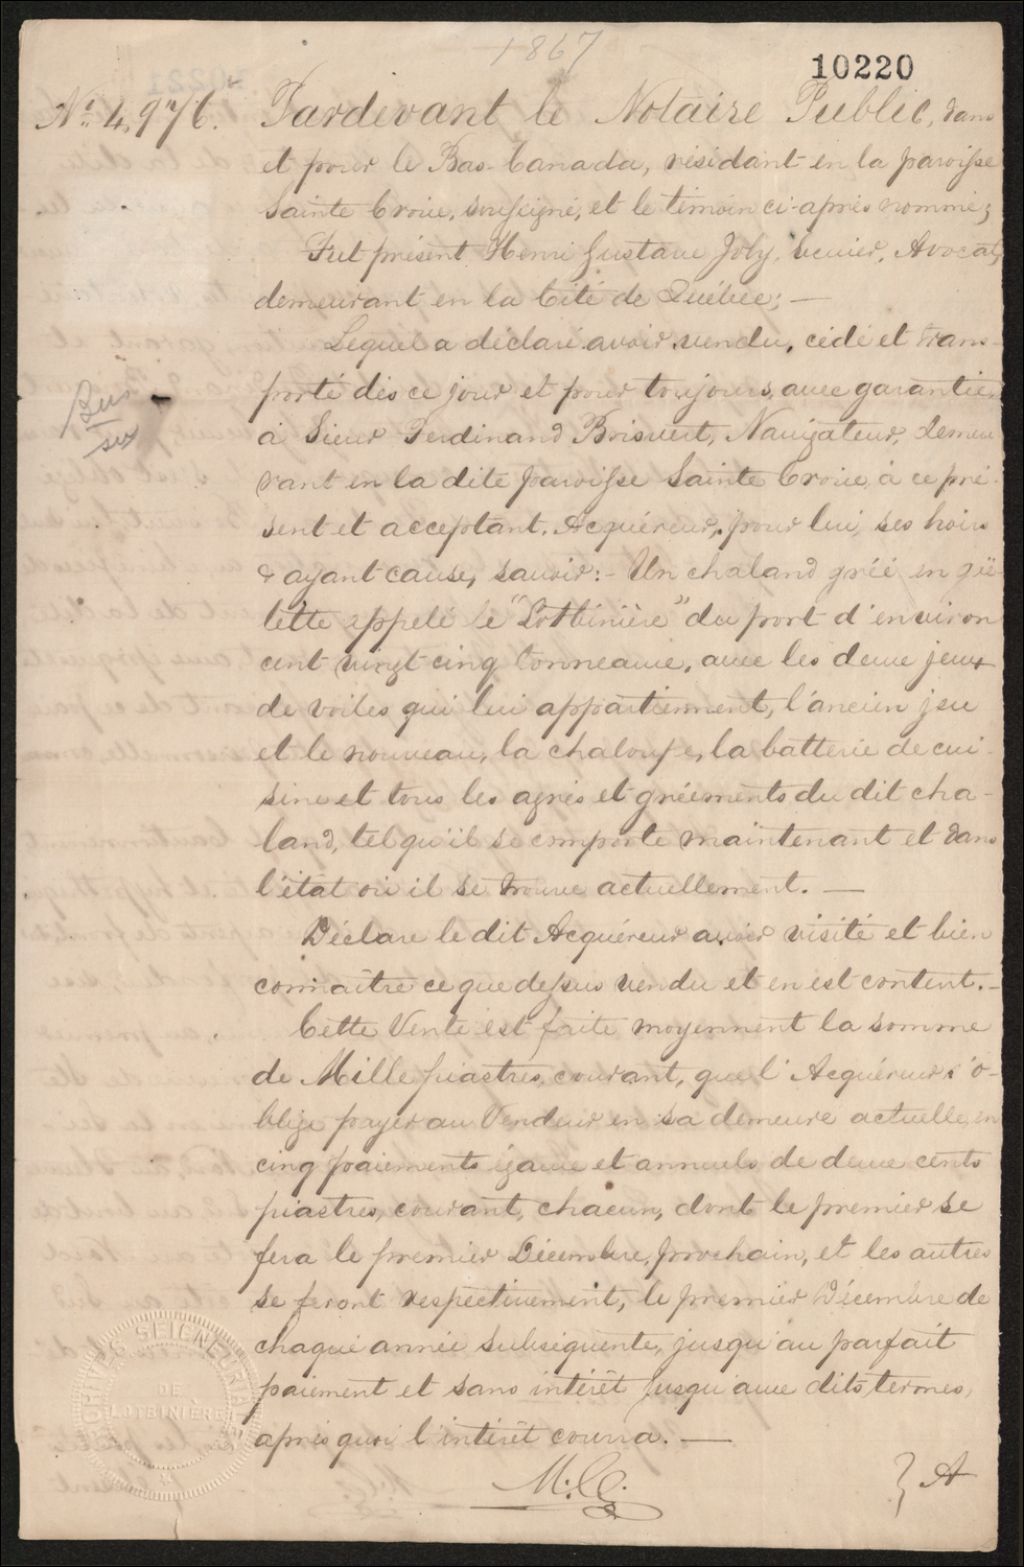 1867
10220
No. 4,976. Pardevant le Notaire Public, dans
et pour le Bas-Canada, résidant en la paroisse
Sainte Croix, soussigné, et le témoin ci-après nommé;
Fut présent Henri Gustave Joly, Ecuier, Avocat,
demeurant en la Cité de Québec; —
Lequel a déclaré avoir vendu, cédé et trans-
porté dès ce jour et pour toujours, avec garantie,
à Sieur Ferdinand Boisvert, Navigateur, demeu-
rant en la dite paroisse Sainte Croix, à ce pré-
sent et acceptant, Acquéreur, pour lui, ses hoirs
& ayant cause, savoir:- Un chaland gréé en goë-
lette appelé le "Lotbinière" du port d'environ
cent vingt cinq tonneaux, avec les deux jeux
de voiles qui lui appartiennent, l'ancien jeu
et le nouveau, la chaloupe, la batterie de cui-
sine et tous les agrès et gréements du dit cha-
land, tel qu'il se comporte maintenant et dans
l'état où il se trouve actuellement. —
Déclare le dit Acquéreur avoir visité et bien
connaître ce que dessus vendu et en est content. -
Cette Vente est faite moyennant la somme
de Mille piastres, courant, que l'Acquéreur s'o-
blige payer au Vendeur en sa demeure actuelle, en
cinq paiements égaux et annuels de deux cents
piastres, courant, chacun, dont le premier se
fera le premier Décembre, prochain, et les autres
se feront respectivement, le premier Décembre de
chaque année subséquente, jusqu'au parfait
paiement et sans intérêt jusqu'aux dits termes,
après quoi l'intérêt courra. —
ARCHIVES SEIGNEURIALES
DE
LOTBINIÈRE